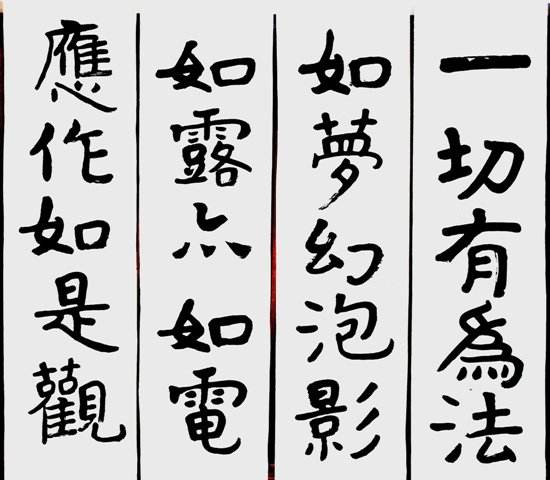 一切有爲法
如夢幻泡影
如露亦如電
應作如是觀